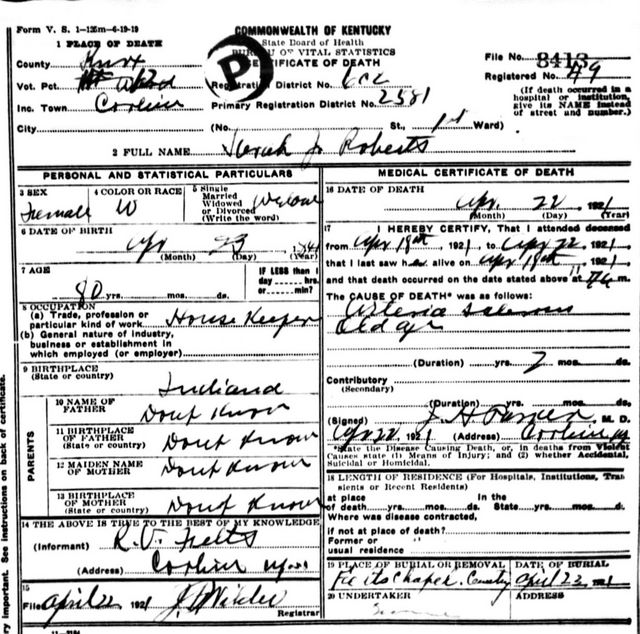 Form V. S. 1—125m—6-19-19
COMMONWEALTH OF KENTUCKY
State Board of Health
BUREAU OF VITAL STATISTICS
CERTIFICATE OF DEATH
1 PLACE OF DEATH
County Knox
Vot. Pct.
Inc. Town Corbin
City (No. St., 1st Ward)
P
Registration District No.
Primary Registration District No. 2581
File No. 8413
Registered No. 49
(If death occurred in a
hospital or institution,
give its NAME instead
of street and number.)
2 FULL NAME Sarah J. Roberts
PERSONAL AND STATISTICAL PARTICULARS
3 SEX Female
4 COLOR OR RACE W
5 Single
Married
Widowed
or Divorced
(Write the word)
6 DATE OF BIRTH
Apr 23 1841
(Month) (Day) (Year)
7 AGE
80 yrs. mos. ds.
IF LESS than 1
day hrs.
or min?
8 OCCUPATION
(a) Trade, profession or
particular kind of work House Keeper
(b) General nature of industry,
business or establishment in
which employed (or employer)
9 BIRTHPLACE
(State or country) Indiana
PARENTS
10 NAME OF
FATHER Dont Know
11 BIRTHPLACE
OF FATHER
(State or country) Dont Know
12 MAIDEN NAME
OF MOTHER Dont Know
13 BIRTHPLACE
OF MOTHER
(State or country) Dont Know
14 THE ABOVE IS TRUE TO THE BEST OF MY KNOWLEDGE
(Informant)
(Address) Corbin
15
Filed April 22 1921 Registrar
MEDICAL CERTIFICATE OF DEATH
16 DATE OF DEATH
Apr 22 1921
(Month) (Day) (Year)
17 I HEREBY CERTIFY, That I attended deceased
from Apr 18th, 1921 to Apr 22, 1921
that I last saw her alive on Apr 18th, 1921
and that death occurred on the date stated above at m
The CAUSE OF DEATH* was as follows:
Old age
(Duration) yrs. 7 mos. ds.
Contributory
(Secondary)
(Duration) yrs. mos. ds.
(Signed) J. H. Parker M. D.
Apr 22 1921 (Address) Corbin Ky
*State the Disease Causing Death, or, in deaths from Violent
Causes state (1) Means of Injury; and (2) whether Accidental,
Suicidal or Homicidal.
18 LENGTH OF RESIDENCE (For Hospitals, Institutions, Tran
sients or Recent Residents)
at place In the
of death yrs. mos. ds. State yrs. mos. ds.
Where was disease contracted,
if not at place of death?
Former or
usual residence
19 PLACE OF BURIAL OR REMOVAL
Chapel
DATE OF BURIAL
April 23 1921
20 UNDERTAKER ADDRESS
ry important. See instructions on back of certificate.